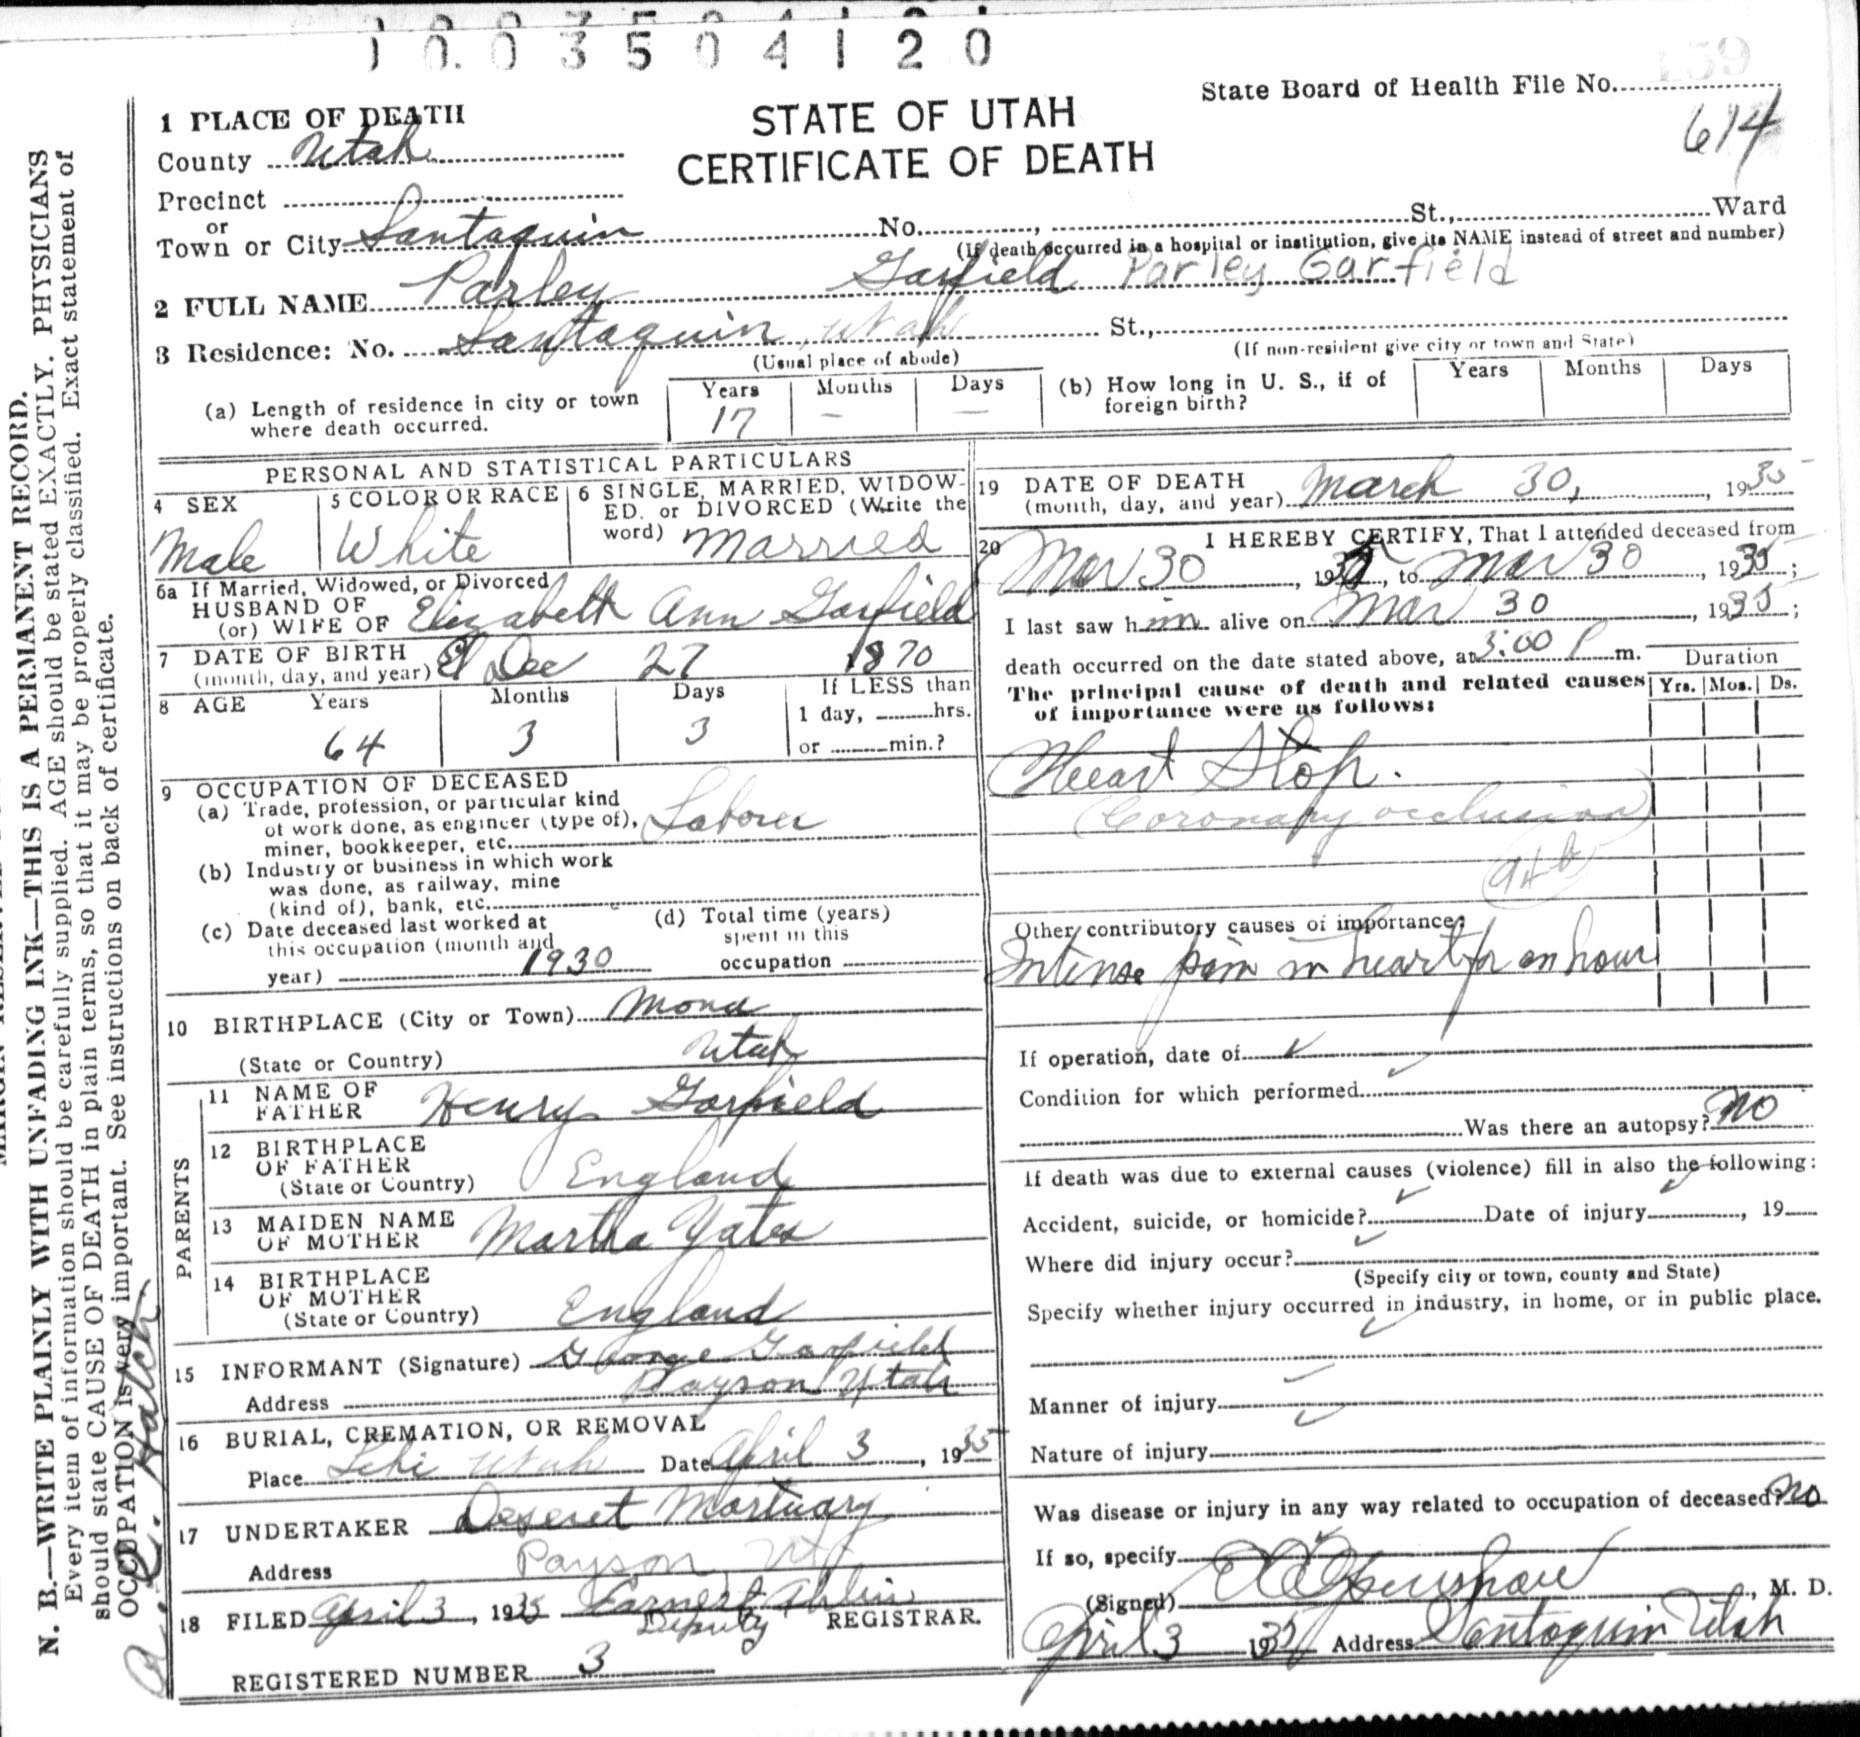 1003504120
State Board of Health File No.
614
STATE OF UTAH
CERTIFICATE OF DEATH
1 PLACE OF DEATH
County Utah
Precinct
or
Town or City Santaquin No. , St., Ward
(If death occurred in a hospital or institution, give its NAME instead of street and number)
2 FULL NAME Parley Garfield Parley Garfield
3 Residence: No. Santaquin, Utah St.,
(Usual place of abode) (If non-resident give city or town and State)
(a) Length of residence in city or town where death occurred. Years 17 Months - Days -
(b) How long in U. S., if of foreign birth? Years Months Days
PERSONAL AND STATISTICAL PARTICULARS
4 SEX Male
5 COLOR OR RACE White
6 SINGLE, MARRIED, WIDOWED, or DIVORCED (Write the word) Married
6a If Married, Widowed, or Divorced
HUSBAND OF
(or) WIFE OF Elizabeth Ann Garfield
7 DATE OF BIRTH
(month, day, and year) Dec 27 1870
8 AGE Years 64 Months 3 Days 3 If LESS than
1 day, hrs.
or min.?
9 OCCUPATION OF DECEASED
(a) Trade, profession, or particular kind
of work done, as engineer (type of),
miner, bookkeeper, etc. Laborer
(b) Industry or business in which work
was done, as railway, mine
(kind of), bank, etc.
(c) Date deceased last worked at
this occupation (month and
year) 1930
(d) Total time (years)
spent in this
occupation
10 BIRTHPLACE (City or Town) Mona
(State or Country) Utah
PARENTS
11 NAME OF
FATHER Henry Garfield
12 BIRTHPLACE
OF FATHER
(State or Country) England
13 MAIDEN NAME
OF MOTHER Martha Yates
14 BIRTHPLACE
OF MOTHER
(State or Country) England
15 INFORMANT (Signature) George Garfield
Address Payson Utah
16 BURIAL, CREMATION, OR REMOVAL
Place Lehi Utah Date April 3, 1935
17 UNDERTAKER Deseret Mortuary
Address Payson, Ut
18 FILED April 3, 1935 Earnest Ahlin
Deputy REGISTRAR.
REGISTERED NUMBER 3
19 DATE OF DEATH
(month, day, and year) March 30, 1935
20 I HEREBY CERTIFY, That I attended deceased from
Mar 30, 1935, to Mar 30, 1935;
I last saw him alive on Mar 30, 1935;
death occurred on the date stated above, at 3:00 P m.
The principal cause of death and related causes
of importance were as follows:
Duration
Yrs. Mos. Ds.
Heart Stop.
(Coronary occlusion)
94b
Other contributory causes of importance:
Intense pain in heart for an hour
If operation, date of
Condition for which performed
Was there an autopsy? No
If death was due to external causes (violence) fill in also the following:
Accident, suicide, or homicide? Date of injury , 19
Where did injury occur?
(Specify city or town, county and State)
Specify whether injury occurred in industry, in home, or in public place.
Manner of injury
Nature of injury
Was disease or injury in any way related to occupation of deceased? No
If so, specify
(Signed) , M. D.
April 3 1935 Address Santaquin Utah
N. B.—WRITE PLAINLY WITH UNFADING INK—THIS IS A PERMANENT RECORD.
Every item of information should be carefully supplied. AGE should be stated EXACTLY. PHYSICIANS
should state CAUSE OF DEATH in plain terms, so that it may be properly classified. Exact statement of
OCCUPATION is very important. See instructions on back of certificate.